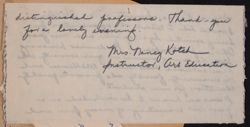 distinguished professors. Thank you
for a lovely evening.
Mrs Nancy Kotch
Instructor, Art Education